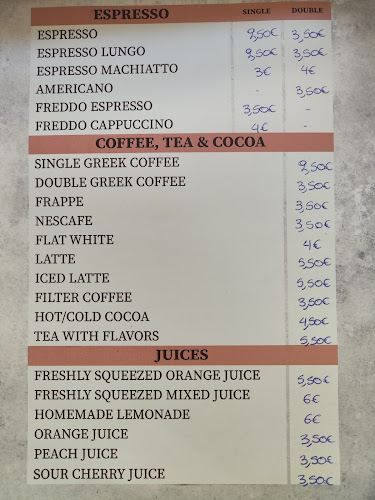 ESPRESSO SINGLE DOUBLE
ESPRESSO 2,50€ 3,50€
ESPRESSO LUNGO 2,50€ 3,50€
ESPRESSO MACHIATTO 3€ 4€
AMERICANO - 3,50€
FREDDO ESPRESSO 3,50€ -
FREDDO CAPPUCCINO 4€ -
COFFEE, TEA & COCOA
SINGLE GREEK COFFEE 2,50€
DOUBLE GREEK COFFEE 3,50€
FRAPPE 3,50€
NESCAFE 3,50€
FLAT WHITE 4€
LATTE 5,50€
ICED LATTE 5,50€
FILTER COFFEE 3,50€
HOT/COLD COCOA 4,50€
TEA WITH FLAVORS 5,50€
JUICES
FRESHLY SQUEEZED ORANGE JUICE 5,50€
FRESHLY SQUEEZED MIXED JUICE 6€
HOMEMADE LEMONADE 6€
ORANGE JUICE 3,50€
PEACH JUICE 3,50€
SOUR CHERRY JUICE 3,50€